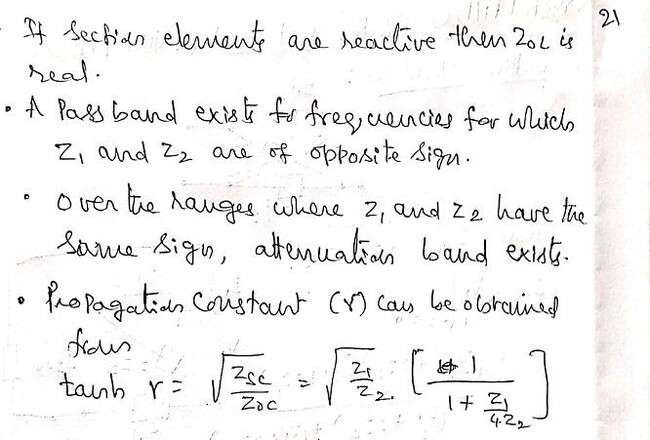 21
If section elements are reactive then ZOL is
real.
• A Pass band exists for frequencies for which
Z1 and Z2 are of opposite sign.
• over the ranges where Z1 and Z2 have the
same sign, attenuation band exists.
• Propagation constant (γ) can be obtained
from
tanh γ = √(Zsc/Zoc) = √(Z1/Z2) [1/(1 + Z1/4.Z2)]